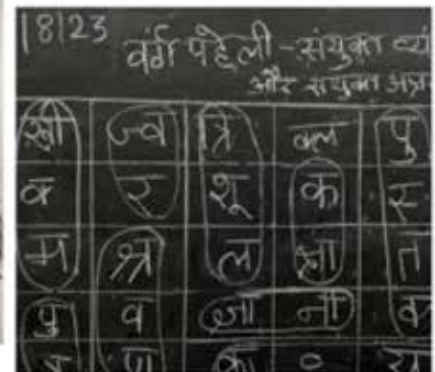 18|23
वर्ग पहेली - संयुक्त व्यं
और संयुक्त अक्ष
ज्व त्रि क्ल पु
क र शू क स्
म श्र ल क्षा त
पु व ज्ञा नी क
ण